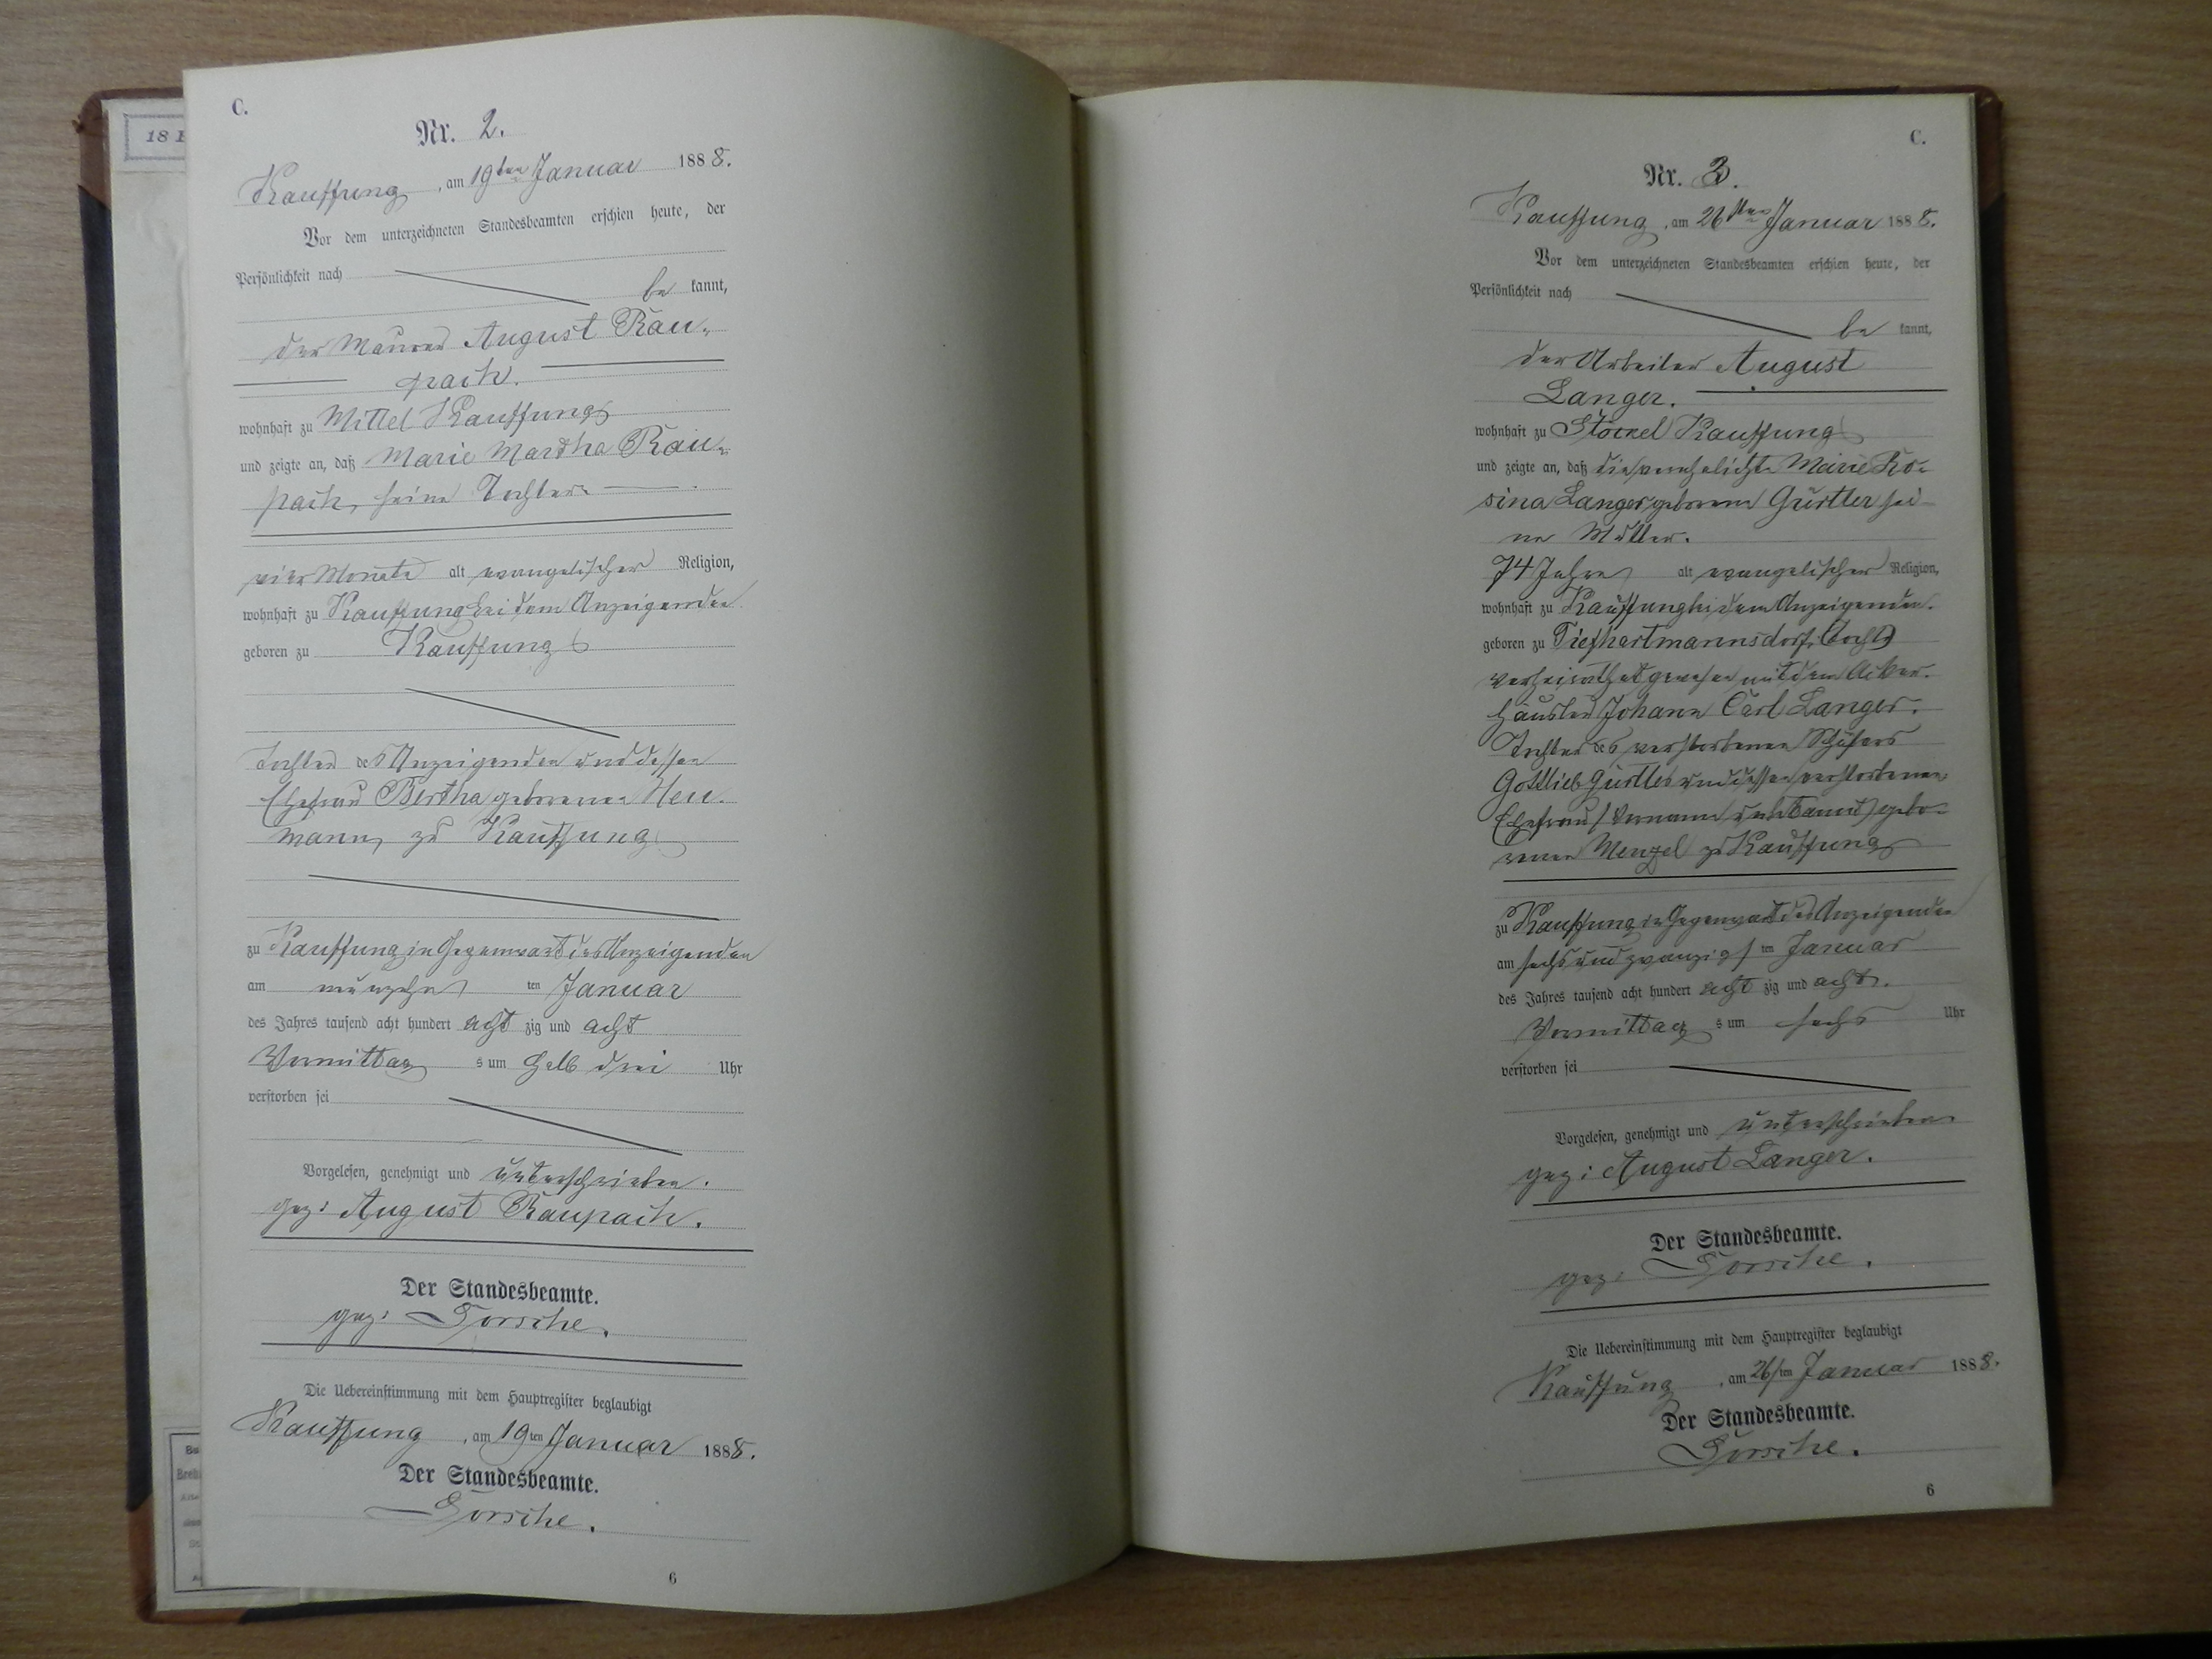 18
C.
Nr. 2.
Kauffung, am 19ten Januar 1888.
Vor dem unterzeichneten Standesbeamten erschien heute, der
Persönlichkeit nach
be kannt,
der Maurer August Rau-
pach.
wohnhaft zu Mittel Kauffung
und zeigte an, daß Marie Martha Rau-
pach, seine Tochter
vier Monate alt evangelischer Religion,
wohnhaft zu Kauffung bei dem Anzeigenden
geboren zu Kauffung
Tochter des Anzeigenden und dessen
Ehefrau Bertha geborenen Heu-
mann, zu Kauffung
zu Kauffung in Gegenwart des Anzeigenden
am neunzehn ten Januar
des Jahres tausend acht hundert acht zig und acht
Vormittag s um halb drei Uhr
verstorben sei
Vorgelesen, genehmigt und unterschrieben.
gez: August Raupach.
Der Standesbeamte.
gez:
Die Uebereinstimmung mit dem Hauptregister beglaubigt
Kauffung, am 19ten Januar 1888.
Der Standesbeamte.
6
C.
Nr. 3.
Kauffung, am 26sten Januar 1888.
Vor dem unterzeichneten Standesbeamten erschien heute, der
Persönlichkeit nach
be kannt,
der Arbeiter August
Langer.
wohnhaft zu Stöckel Kauffung
und zeigte an, daß die verehelichte Marie Ro-
sina Langer geborene Gürtler sei-
ne Mutter.
74 Jahre alt evangelischer Religion,
wohnhaft zu Kauffung bei dem Anzeigenden.
geboren zu Tiefhartmannsdorf,
verheirathet gewesen mit dem Acker-
häusler Johann Carl Langer.
Tochter des verstorbenen Schäfers
Gottlieb Gürtler und dessen verstorbenen
Ehefrau (Vorname unbekannt) gebo-
renen Menzel zu Kauffung
zu Kauffung in Gegenwart des Anzeigenden
am sechsundzwanzigs ten Januar
des Jahres tausend acht hundert acht zig und acht.
Vormittag s um sechs Uhr
verstorben sei
Vorgelesen, genehmigt und unterschrieben
gez: August Langer.
Der Standesbeamte.
gez:
Die Uebereinstimmung mit dem Hauptregister beglaubigt
Kauffung, am 26sten Januar 1888.
Der Standesbeamte.
6